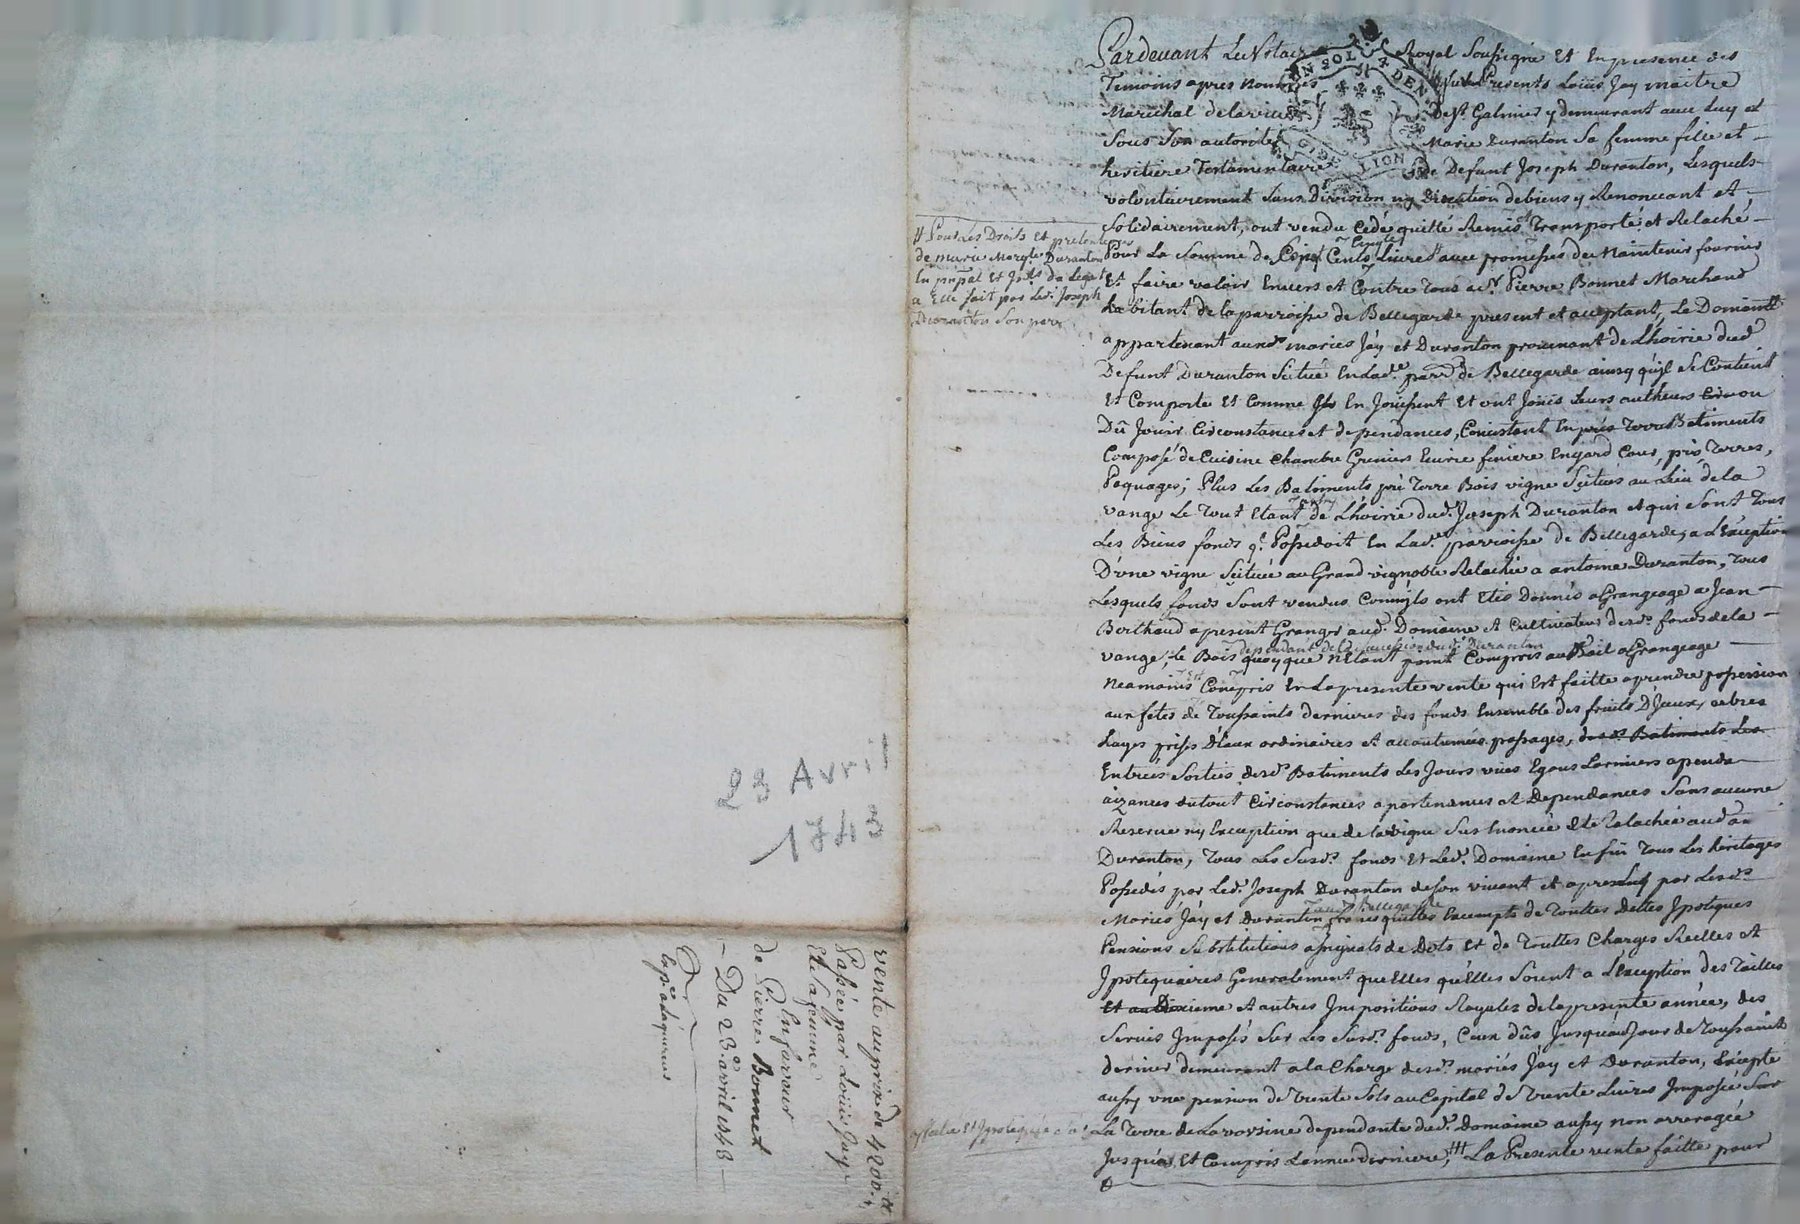 Pardevant Le Notaire Royal Soussigné Et En presence des
Temoins apres nommés furent Presents Loüis Jay maitre
Marechal de la ville de St. Galmier y demeurant avec luy et
Sous Son autorité Marie Duranton Sa femme fille et
heritiere Testamentaire de Defunt Joseph Duranton, Lesquels
volontairement Sans Division ny Discution de biens y Renonceant Et
Solidairement, ont vendu Cedé quitté Remis et Transporté et Relaché
Pour La Somme de Cents Livres avec promesses de Maintenir fournir
Et faire valoir Envers et Contre Tous a Sr. Pierre Bonnet Marchand
habitant de la parroisse de Bellegarde present et acceptant, Le Domaine
appartenant auxds. mariés Jay et Duranton provenant de L'hoirie dud.
Defunt Duranton Scitué En lad. par. de Bellegarde ainsy qu'il Se Contient
Et Comporte Et Comme En Joüissent Et ont Joüis Leurs autheurs ou
Dû Jouir Circonstances et dependances, Concistant En prés Terres Batiments
Composé de Cuisine Chambre Greniers Ecurie feniere Engard Cour, prés Terres,
Paquages; Plus Les Batiments pré Terre Bois vigne Scitués au Lieu de la
vange Le Tout Etant de L'hoirie dud. Joseph Duranton et qui Sont Tous
Les Biens fonds q. Possedoit En Lad. parroisse de Bellegarde, a L'Exception
D'une vigne Scituée au Grand vignoble Relachée a antoine Duranton, Tous
Lesquels fonds Sont vendus Comm'ils ont Etés Donnés a Grangeage a Jean
Berthaud apresent Granger aud. Domaine et Cultivateur desd. fonds de la
dependant de la succession dud. Duranton
vange, Le Bois quoyque N'Etant point Compris au Bail a Grangeage
Neamoins Compris En La presente vente qui Est faitte a prendre possession
aux fetes de Toussaints dernieres des fonds Ensemble des fruits D'Jceux,
prises D'Eaux ordinaires et accoutumées passages, desd. Batiments Les
Entrées Sorties desd. Batiments Les Jours vües Egous Larmiers
aizances du tout Circonstances apartenances et Dependances Sans aucune
Reserve ny Exception que de la vigne Sus Enoncée Relachée aud. an.
Duranton, Tous Les Susd. fonds Et Led. Domaine Enfin Tous Les héritages
Possedés par Led. Joseph Duranton de Son vivant et apres Luy par Lesds.
Mariés Jay et Duranton francs quittes Exempts de Touttes Dettes Jpoteques
Pensions Substitutions assignats de Dots Et de Touttes Charges Reelles Et
Jpotequaires Generalement quelles qu'Elles Soient a L'Exception des Tailles
et au Dixieme et autres Jmpositions Royales de la presente année, des
Servis Jmposés Sur Les Susd. fonds, Ceux dûs Jusqu'au Jour de Toussaint
dernier demeurant a la Charge desd. mariés Jay et Duranton, Excepté
aussy une pension de Trente Sols au Capital de Trente Livres Jmposée Sur
La Terre de La vorsine dependante dud. Domaine aussy non arreragée
Jusqu'a, Et Compris L'année derniere, La Presente vente faitte pour
Pour Les Droits Et
de marie Duranton
En Et de Legat
a Elle fait par Led. Joseph
Duranton Son pere
23 Avril
1743
vente au prix de 4200.
Passée par Loüis Jay
Et Sa femme
En faveur
de Pierre Bonnet
Du 23e. avril 1743